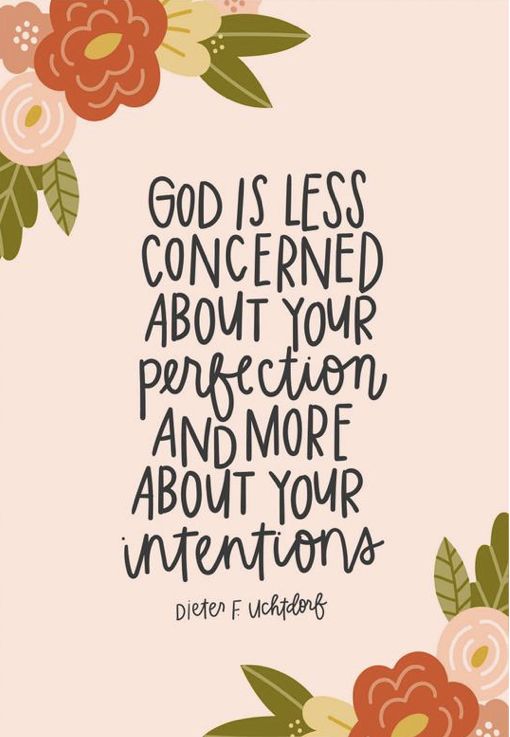 GOD IS LESS
CONCERNED
ABOUT YOUR
perfection
AND MORE
ABOUT YOUR
intentions
Dieter F. Uchtdorf